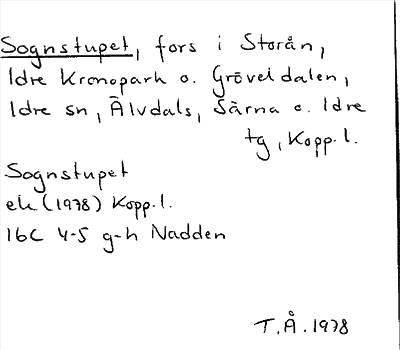 Sognstupet, fors i Storån,
Idre Kronopark o. Gröveldalen,
Idre sn, Älvdals, Särna o. Idre
tg, Kopp.l.
Sognstupet
ek (1978) Kopp.l.
16C 4-5 g-h Nadden
T.Å. 1978